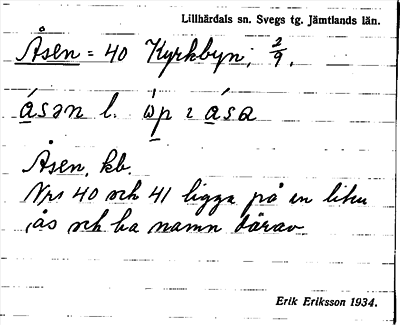 Lillhärdals sn. Svegs tg. Jämtlands län.
Åsen = 40 Kyrkbyn; 2/9.
åsən l. åp i åsa
Åsen, kb.
Nrs 40 och 41 ligga på en liten
ås och ha namn därav
Erik Eriksson 1934.